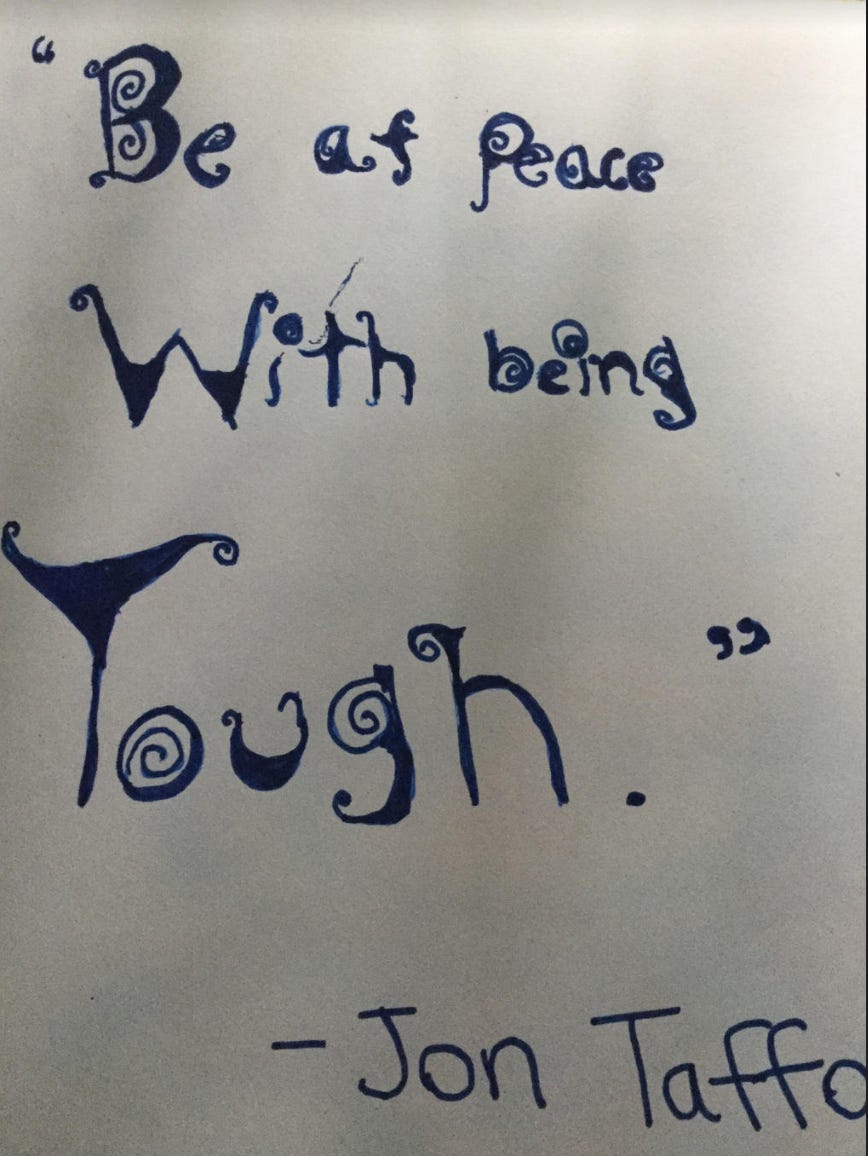 “Be at Peace
With being
Tough.”
- Jon Taffo